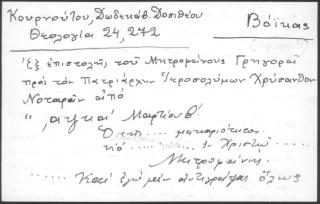 Κουρνούτου, Δωδεκάβ. Δοσιθέου
Θεολογία 24, 272
Βόϊκας
Ἐξ ἐπιστολῆς τοῦ Μητροφάνους Γρηγορᾶ
πρὸς τὸν Πατριάρχην Ἱεροσολύμων Χρύσανθον
Νοταρᾶν ἀπὸ
"͵αψκαʹ Μαρτίου βʹ.
Ὁ τῆς ..... μακαριότητος
..... ἐν Χριστῷ
Μητροφάνης.
..... Καὶ ἐγὼ μὲν ἀντιγράψας ὅλως